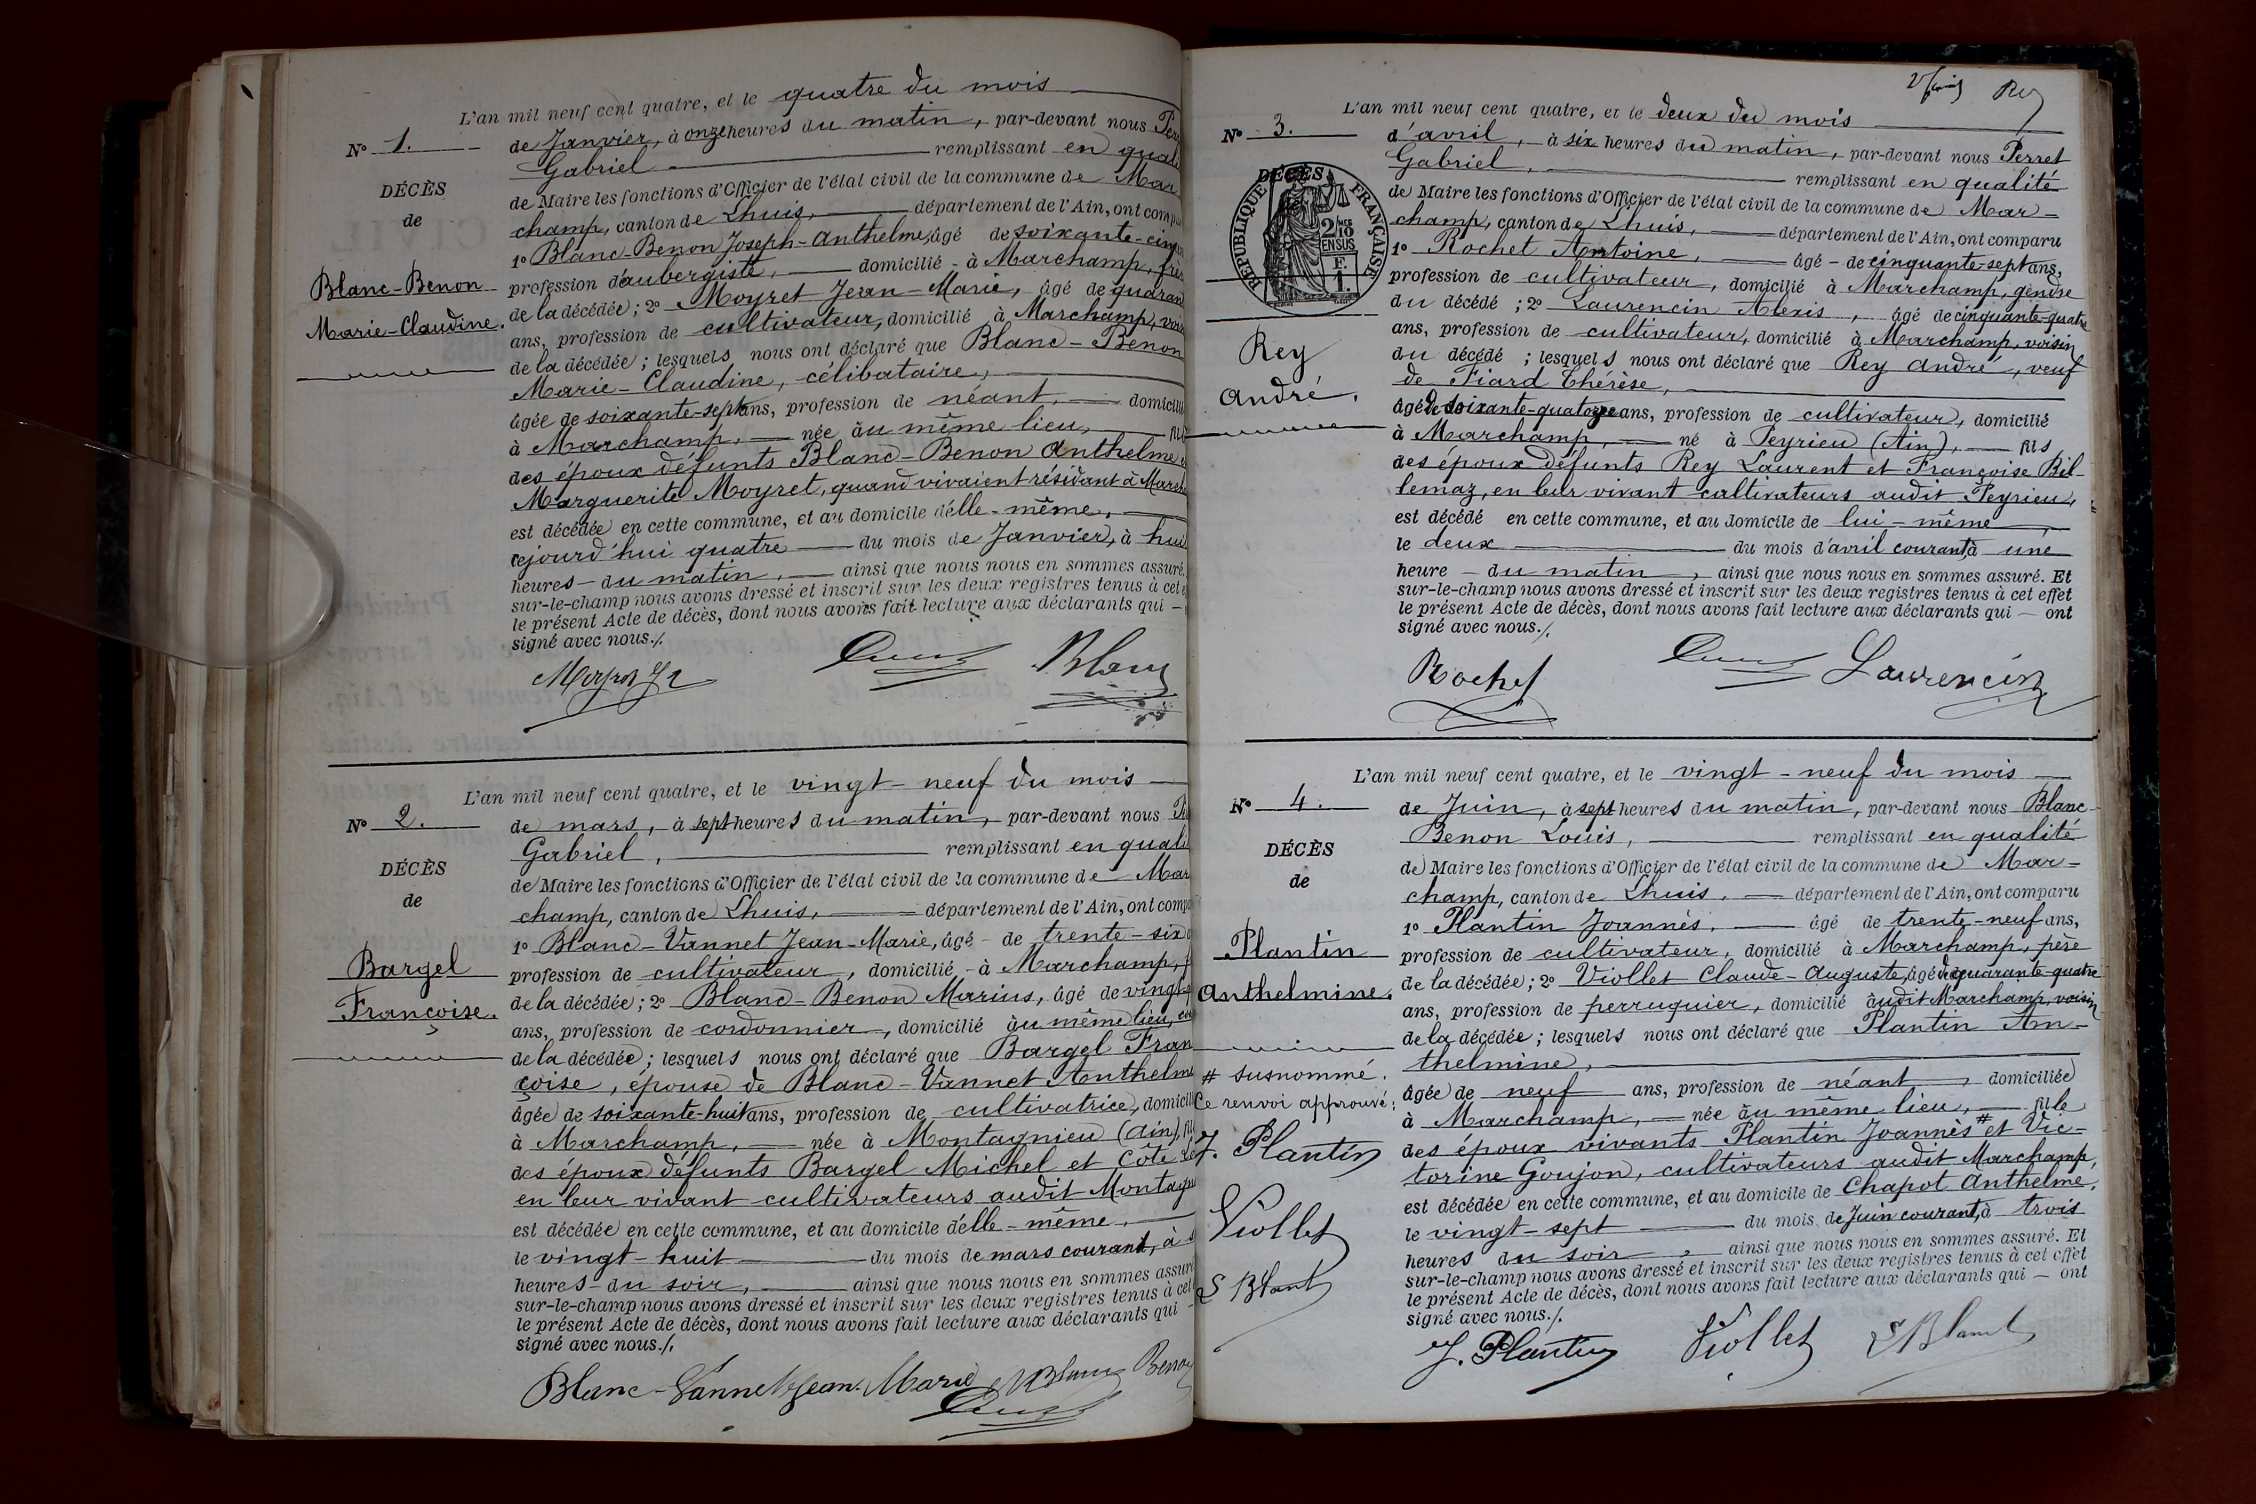 L'an mil neuf cent quatre, et le quatre du mois
N° 1.
de Janvier, à onze heures du matin, par-devant nous
Gabriel remplissant en
DÉCÈS
de
de Maire les fonctions d'Officier de l'état civil de la commune de Mar
champ, canton de Lhuis, département de l'Ain, ont
1° Blanc-Benon Joseph-Anthelme, âgé de soixante-cinq
Blanc-Benon
Marie-Claudine.
profession d'aubergiste, domicilié à Marchamp,
de la décédée; 2° Moyret Jean-Marie, âgé de
ans, profession de cultivateur, domicilié à Marchamp,
de la décédée; lesquels nous ont déclaré que Blanc-Benon
Marie-Claudine, célibataire,
âgée de soixante-sept ans, profession de néant,
à Marchamp, née au même lieu,
des époux défunts Blanc-Benon Anthelme
Marguerite Moyret, quand vivaient résidant à
est décédée en cette commune, et au domicile d'elle-même,
cejourd'hui quatre du mois de Janvier, à
heures du matin, ainsi que nous nous en sommes assuré.
sur-le-champ nous avons dressé et inscrit sur les deux registres tenus à cet
le présent Acte de décès, dont nous avons fait lecture aux déclarants qui
signé avec nous./.
Blanc
L'an mil neuf cent quatre, et le vingt-neuf du mois
N° 2.
de mars, à sept heures du matin, par-devant nous
Gabriel, remplissant en
DÉCÈS
de
de Maire les fonctions d'Officier de l'état civil de la commune de Mar
champ, canton de Lhuis, département de l'Ain, ont
1° Blanc-Vannet Jean-Marie, âgé de trente-six
Bargel
Françoise.
profession de cultivateur, domicilié à Marchamp,
de la décédée; 2° Blanc-Benon Marius, âgé de
ans, profession de cordonnier, domicilié au même lieu,
de la décédée; lesquels nous ont déclaré que Bargel Fran
çoise, épouse de Blanc-Vannet Anthelme
âgée de soixante-huit ans, profession de cultivatrice,
à Marchamp, née à Montagnieu (Ain),
des époux défunts Bargel Michel et Côte
en leur vivant cultivateurs audit
est décédée en cette commune, et au domicile d'elle-même,
le vingt-huit du mois de mars courant, à
heures du soir, ainsi que nous nous en sommes
sur-le-champ nous avons dressé et inscrit sur les deux registres tenus à cet
le présent Acte de décès, dont nous avons fait lecture aux déclarants qui
signé avec nous./.
Blanc-Vannet Jean Marie
Rey
L'an mil neuf cent quatre, et le deux du mois
N° 3.
d'avril, à six heures du matin, par-devant nous Perret
Gabriel, remplissant en qualité
DÉCÈS
RÉPUBLIQUE FRANÇAISE
de Maire les fonctions d'Officier de l'état civil de la commune de Mar-
champ, canton de Lhuis, département de l'Ain, ont comparu
1° Rochet Antoine, âgé de cinquante-sept ans,
profession de cultivateur, domicilié à Marchamp, gendre
du décédé; 2° Laurencin Alexis, âgé de cinquante-quatre
ans, profession de cultivateur, domicilié à Marchamp, voisin
Rey
André.
du décédé; lesquels nous ont déclaré que Rey André, veuf
de Fiard Thérèse,
âgé de soixante-quatorze ans, profession de cultivateur, domicilié
à Marchamp, né à Peyrieu (Ain), fils
des époux défunts Rey Laurent et Françoise Bil-
lemaz, en leur vivant cultivateurs audit Peyrieu,
est décédé en cette commune, et au domicile de lui-même,
le deux du mois d'avril courant, à une
heure du matin, ainsi que nous nous en sommes assuré. Et
sur-le-champ nous avons dressé et inscrit sur les deux registres tenus à cet effet
le présent Acte de décès, dont nous avons fait lecture aux déclarants qui — ont
signé avec nous./.
Rochet
Laurencin
L'an mil neuf cent quatre, et le vingt-neuf du mois
N° 4.
de Juin, à sept heures du matin, par-devant nous Blanc-
Benon Louis, remplissant en qualité
DÉCÈS
de
de Maire les fonctions d'Officier de l'état civil de la commune de Mar-
champ, canton de Lhuis, département de l'Ain, ont comparu
1° Plantin Joannès, âgé de trente-neuf ans,
Plantin
Anthelmine.
profession de cultivateur, domicilié à Marchamp, père
de la décédée; 2° Viollet Claude-Auguste, âgé de quarante-quatre
ans, profession de perruquier, domicilié audit Marchamp, voisin
de la décédée; lesquels nous ont déclaré que Plantin An-
thelmine,
âgée de neuf ans, profession de néant, domiciliée
à Marchamp, née au même lieu, fille
des époux vivants Plantin Joannès # et Vic-
torine Goujon, cultivateurs audit Marchamp,
est décédée en cette commune, et au domicile de Chapot Anthelme,
le vingt-sept du mois de Juin courant, à trois
heures du soir, ainsi que nous nous en sommes assuré. Et
sur-le-champ nous avons dressé et inscrit sur les deux registres tenus à cet effet
le présent Acte de décès, dont nous avons fait lecture aux déclarants qui — ont
signé avec nous./.
# susnommé.
Ce renvoi approuvé:
J. Plantin
Viollet
L Blanc
J. Plantin
Viollet
L Blanc